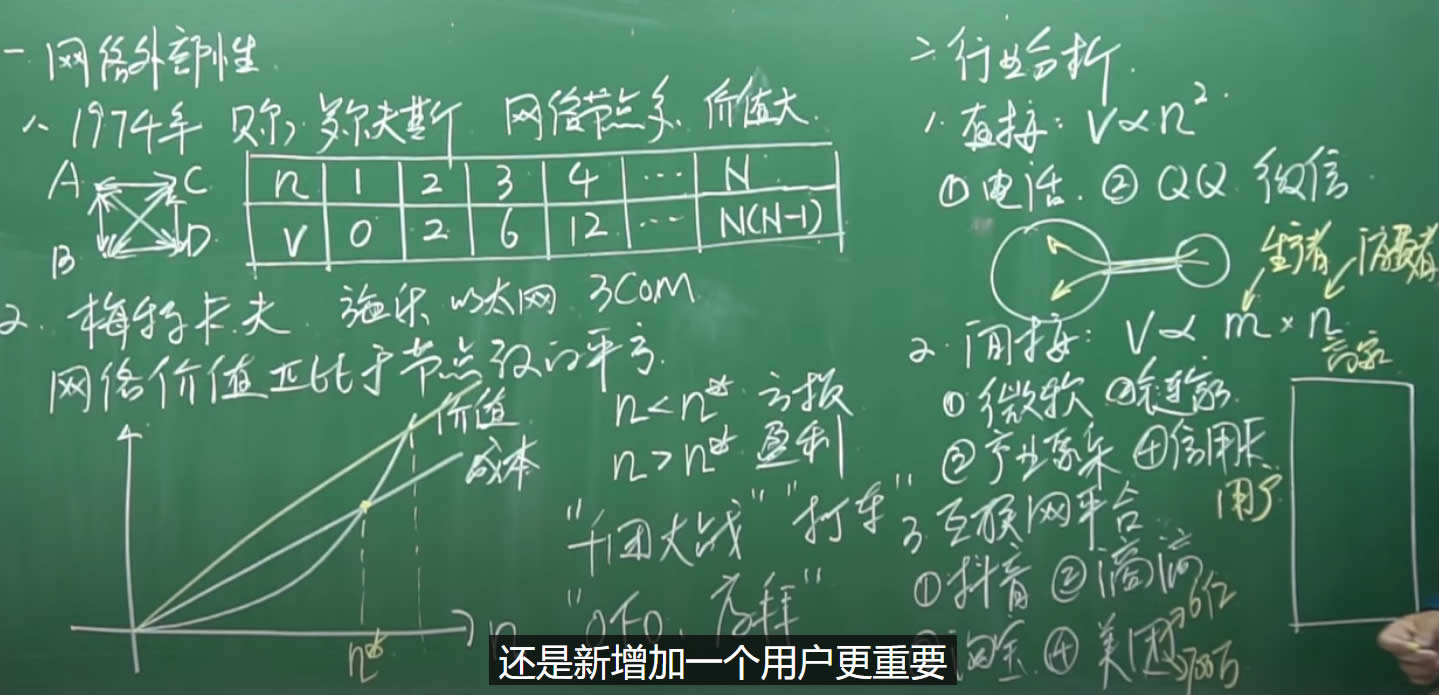 一、网络外部性
1、1974年 贝尔, 罗尔夫斯 网络节点多、价值大
A C
B D
n 1 2 3 4 … N
V 0 2 6 12 … N(N-1)
2. 梅特卡夫 施乐 以太网 3Com
网络价值正比于节点数的平方.
价值
成本
n*
n
n<n* 亏损
n>n* 盈利
"千团大战" "打车"
"OFO、摩拜"
二、行业分析.
1. 直接: V∝n².
① 电话. ② QQ 微信
生产者 消费者
2. 间接: V∝ m×n
商家
① 微软 ③ 链家
② 产业聚集 ④ 信用卡
用户
3 互联网平台
① 抖音 ② 滴滴
淘宝 ④ 美团
还是新增加一个用户更重要